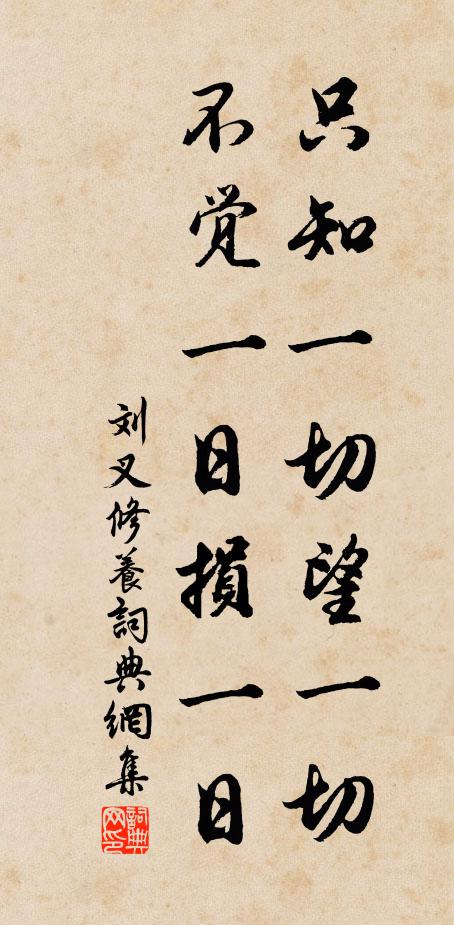 只知一切望一切
不觉一日损一日
刘叉修養詞典網集
詞典网印